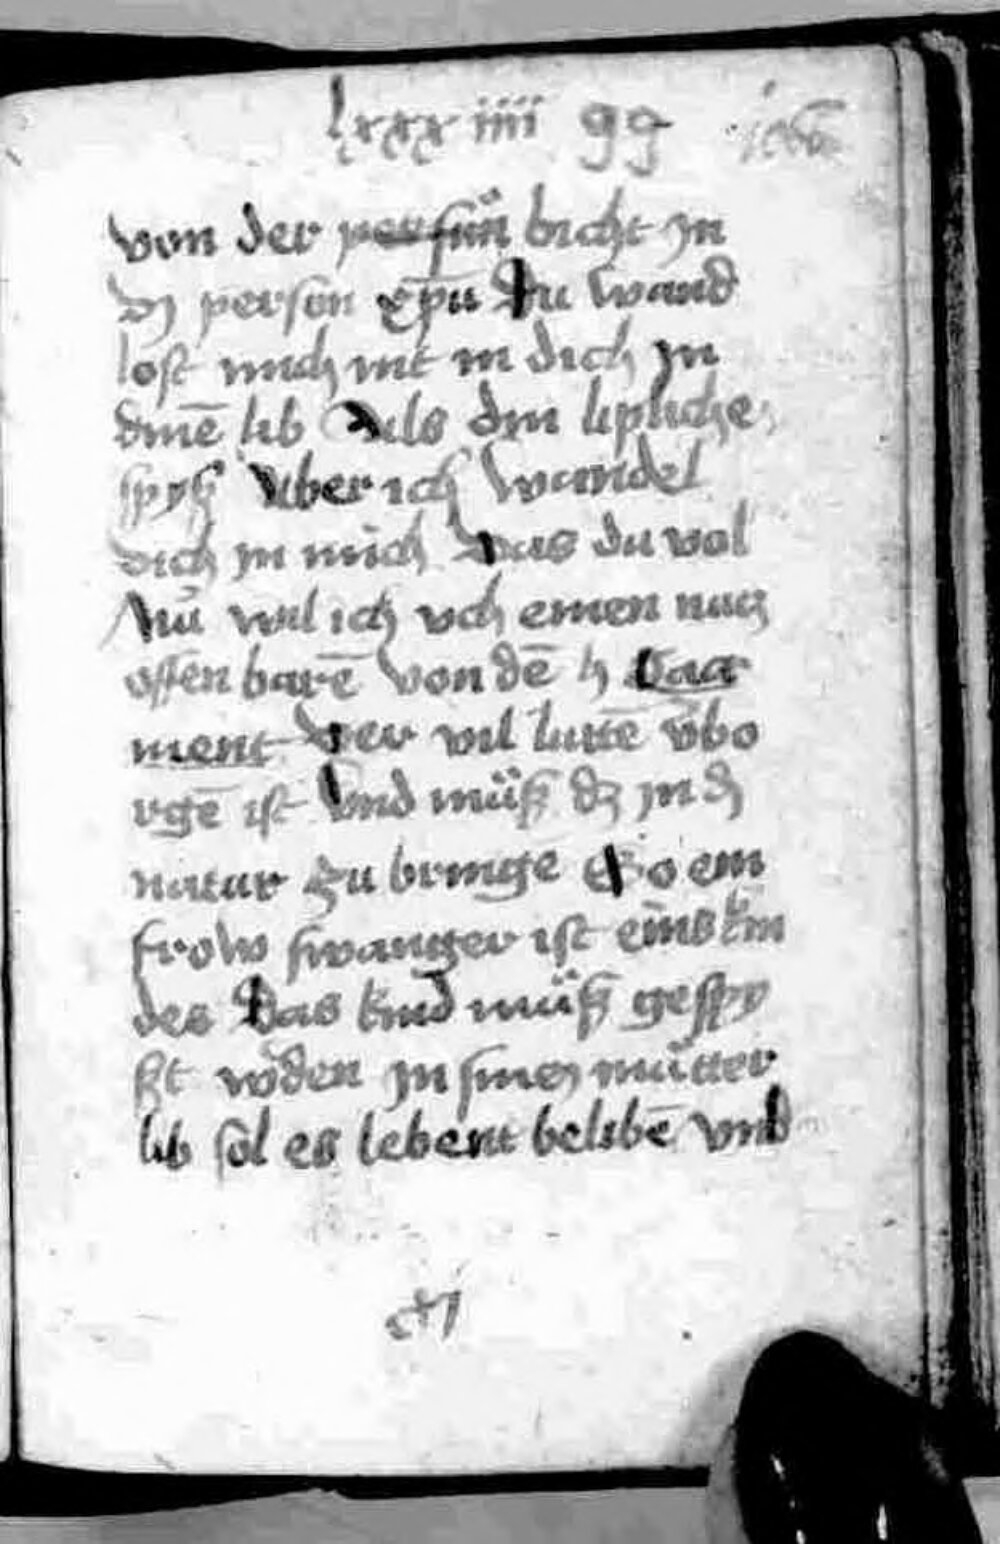 lxxxiiii 99
von der persün bicht jn
dz person xp̄u Du wand
lost mich nit in dich jn
dinē lib Als din lipliche
spyß Aber ich wandel
dich jn mich Das du vol
Nu wil ich vch einen nutz
offenbarē von dē h Sacr
ment Der vil lutē v̄bo
rgē ist Vnd müß dz jn dz
natur zu bringe So ein
frow swanger ist eins kin
des Das kind müß gespy
ßt wͦden jn siner mütter
lib sol es lebent belibē vnd